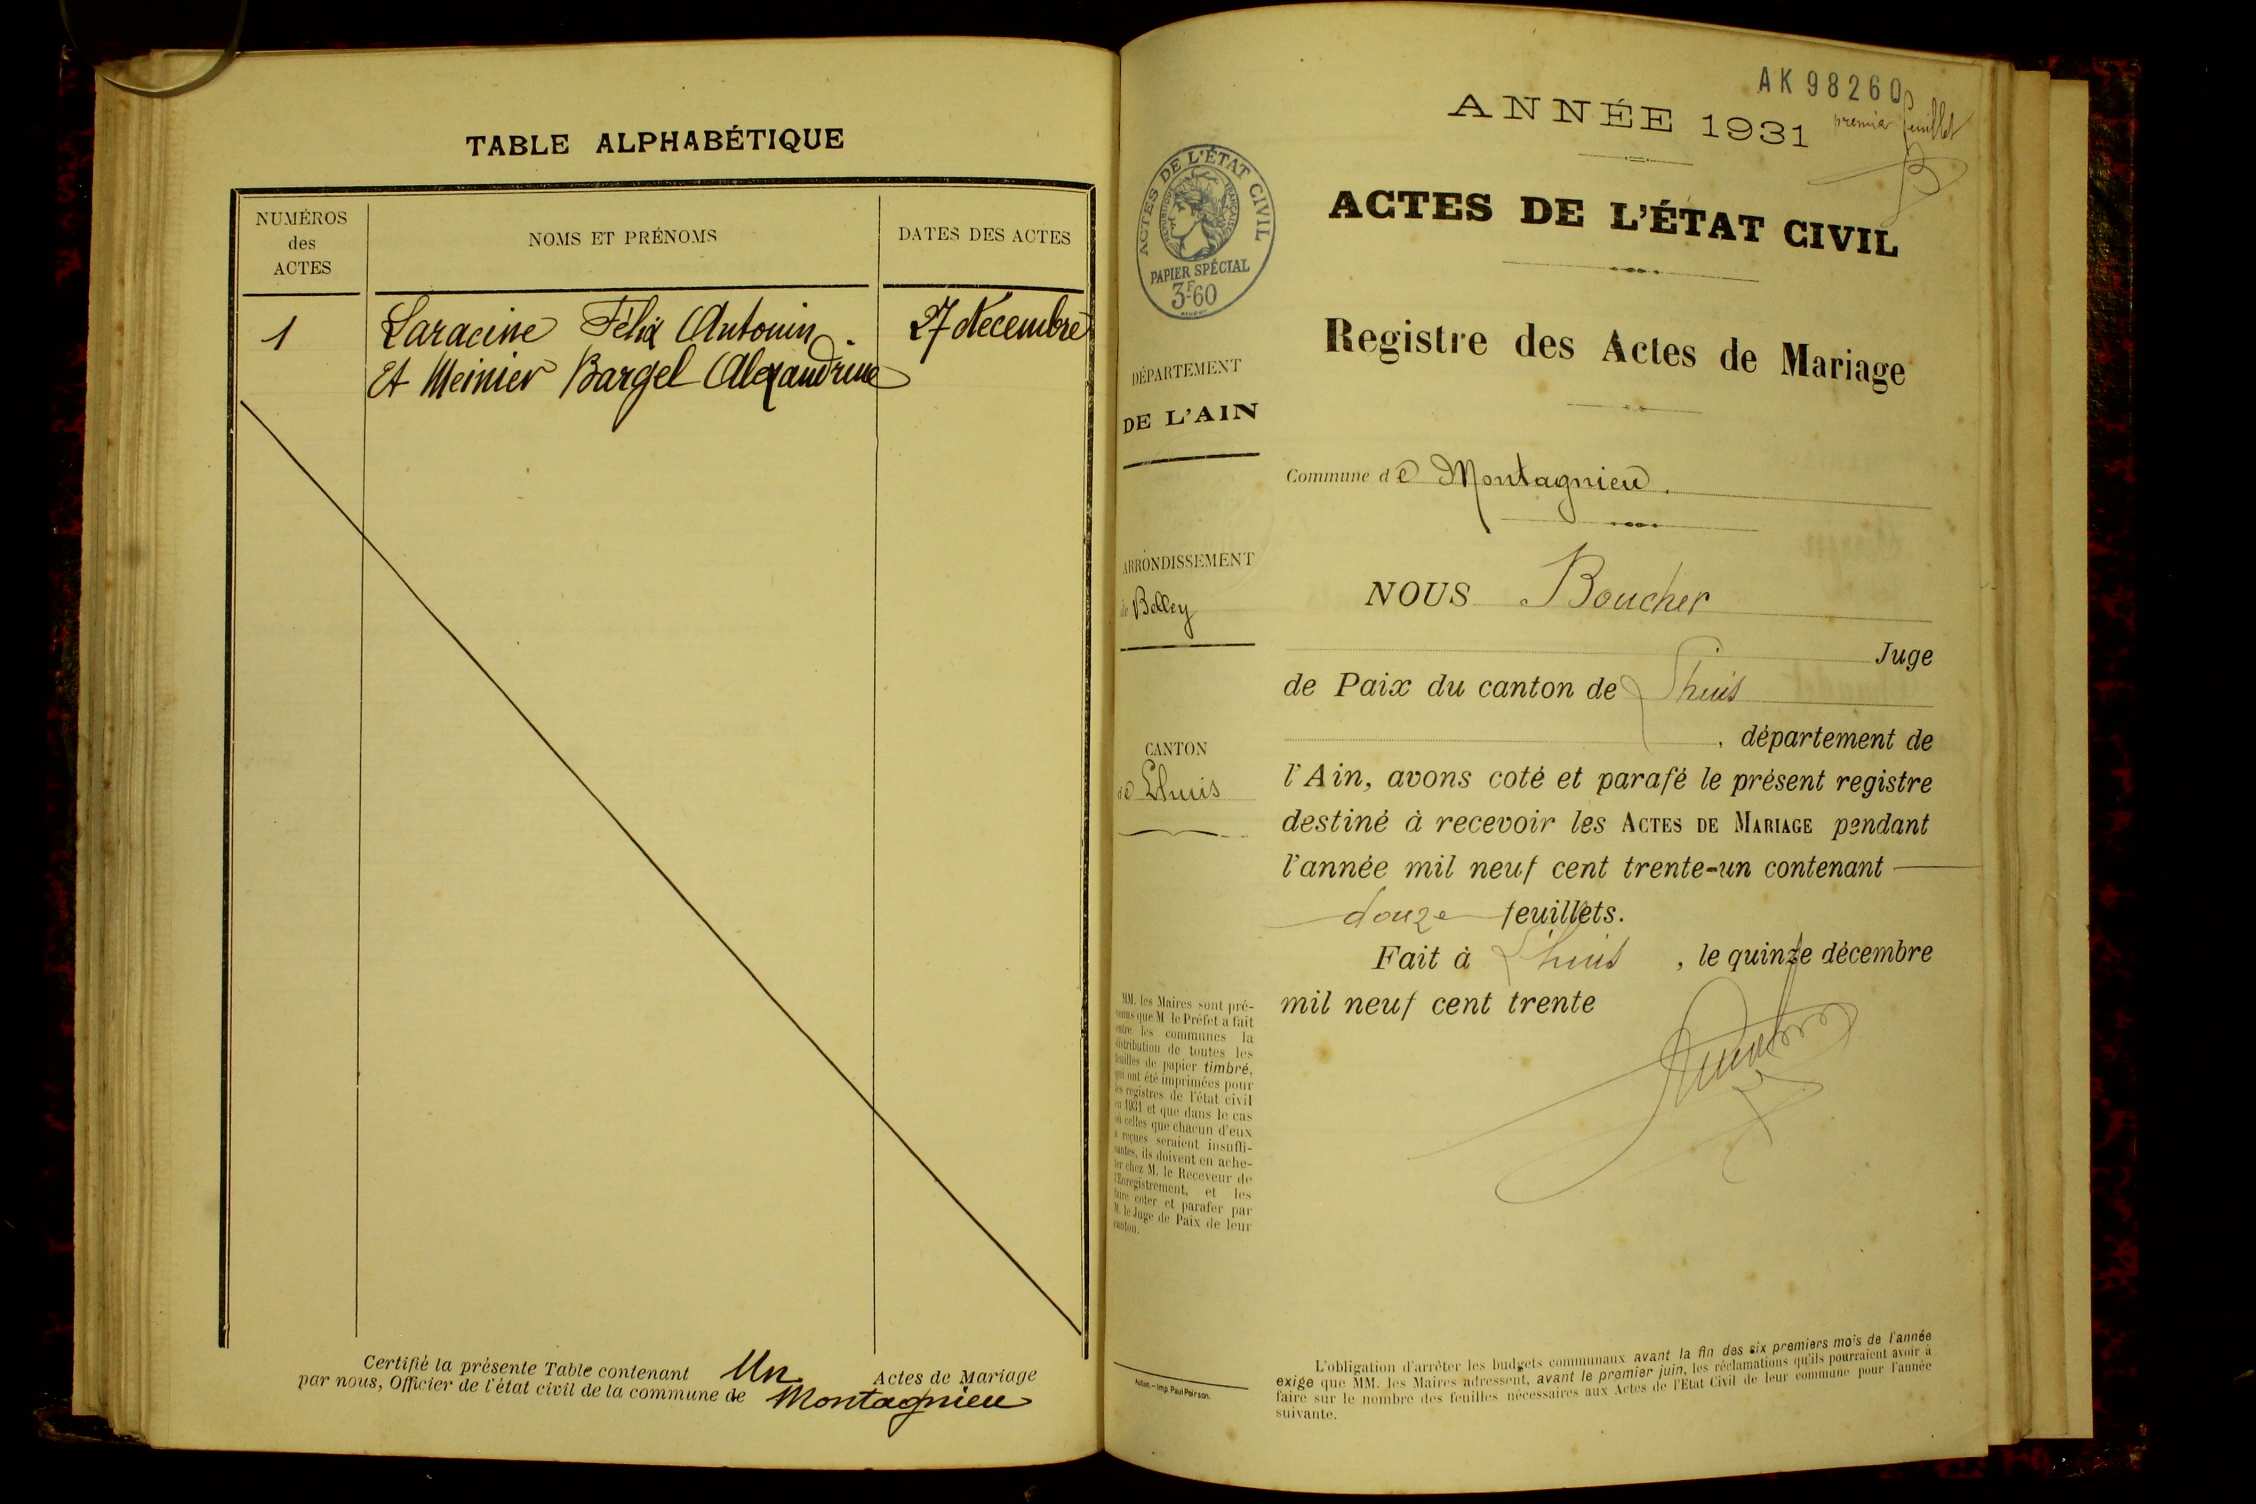 TABLE ALPHABÉTIQUE
NUMÉROS
des
ACTES
NOMS ET PRÉNOMS
DATES DES ACTES
1
Laracine Félix Antonin
27 décembre
Et Meinier Bargel Alexandrine
Certifié la présente Table contenant Un Actes de Mariage
par nous, Officier de l'état civil de la commune de Montagnieu
AK 98260
premier feuillet
ANNÉE 1931
ACTES DE L'ÉTAT CIVIL
RÉPUBLIQUE FRANÇAISE
PAPIER SPÉCIAL
3F60
ACTES DE L'ÉTAT CIVIL
Registre des Actes de Mariage
DÉPARTEMENT
DE L'AIN
Commune de Montagnieu.
ARRONDISSEMENT
de Belley
NOUS Boucher
Juge
de Paix du canton de Lhuis
, département de
CANTON
de Lhuis
l'Ain, avons coté et parafé le présent registre
destiné à recevoir les ACTES DE MARIAGE pendant
l'année mil neuf cent trente-un contenant
douze feuillets.
Fait à Lhuis, le quinze décembre
mil neuf cent trente
MM. les Maires sont pré-
venus que M le Préfet a fait
entre les communes la
distribution de toutes les
feuilles de papier timbré,
qui ont été imprimées pour
les registres de l'état civil
en 1931 et que dans le cas
où celles que chacun d'eux
a reçues seraient insuffi-
santes, ils doivent en ache-
ter chez M. le Receveur de
l'Enregistrement, et les
faire coter et parafer par
M. le Juge de Paix de leur
canton.
L'obligation d'arrêter les budgets communaux avant la fin des six premiers mois de l'année
exige que MM. les Maires adressent, avant le premier juin, les réclamations qu'ils pourraient avoir à
faire sur le nombre des feuilles nécessaires aux Actes de l'Etat Civil de leur commune pour l'année
suivante.
Imp. Paul Poirson.